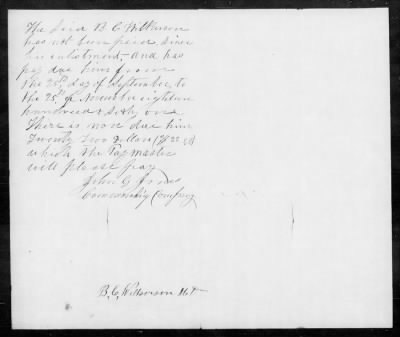 The said B C Wilkerson
has not been paid since
his enlistment, and has
pay due him from
the 25th day of September to
the 25th of November eighteen
hundred & sixty one
There is now due him
Twenty Two Dollars ($22.00)
which the Pay master
will please pay
John G Jones
Commanding Company
B. C. Wilkerson